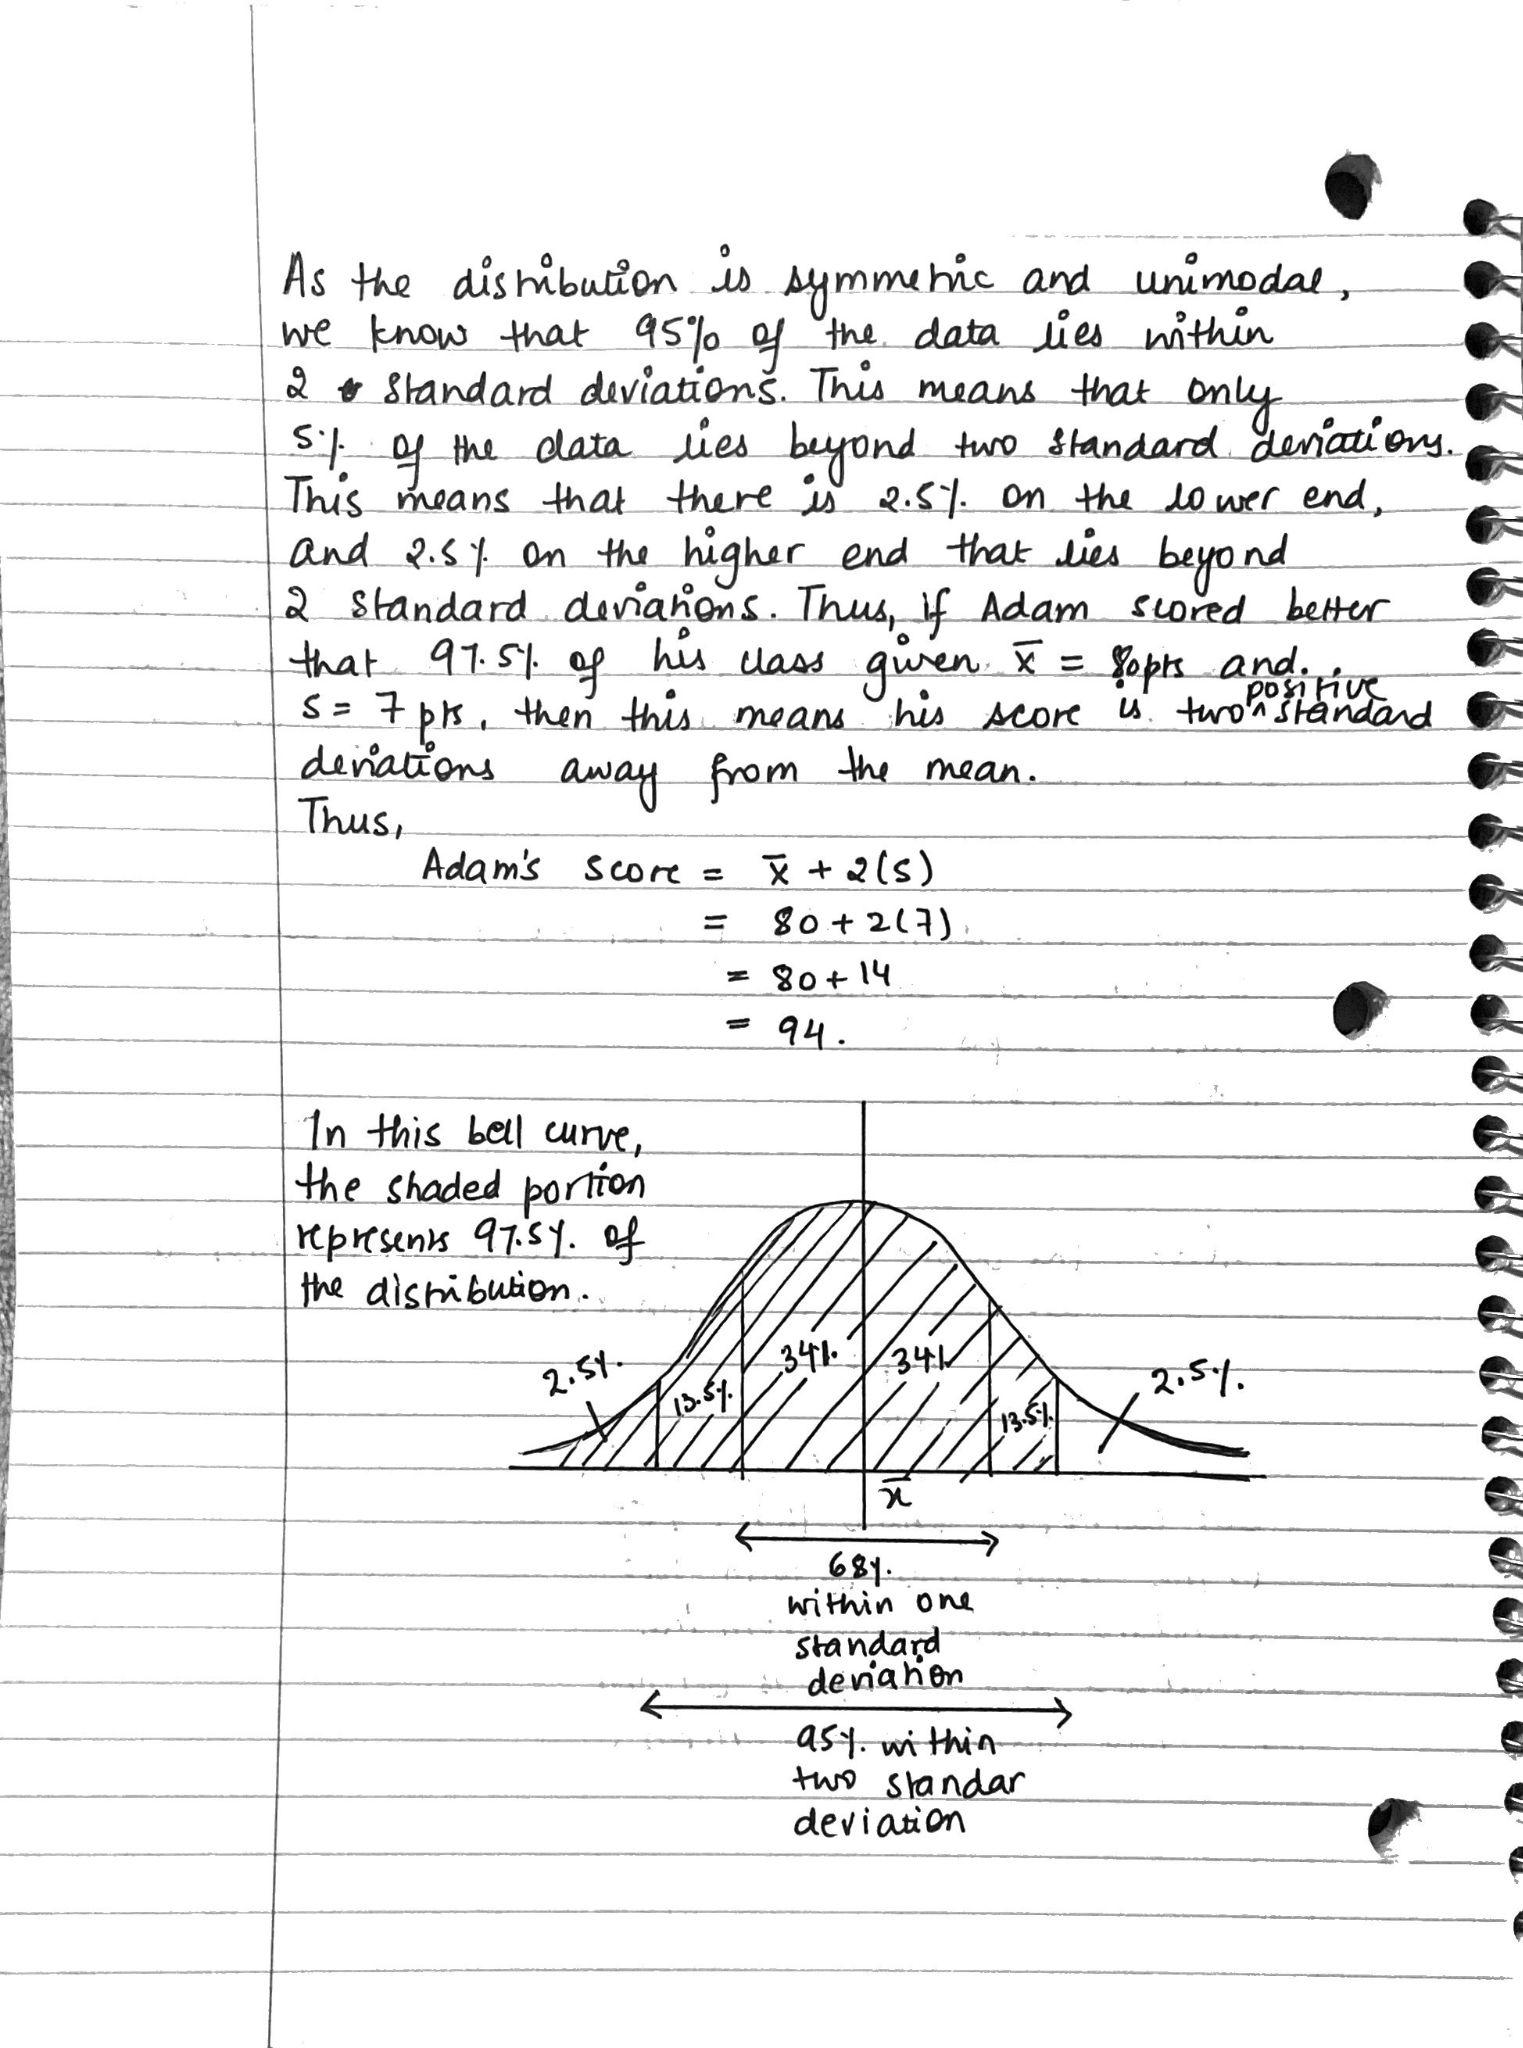 As the distribution is symmetric and unimodal,
we know that 95% of the data lies within
2 standard deviations. This means that only
5% of the data lies beyond two standard deviations.
This means that there is 2.5% on the lower end,
and 2.5% on the higher end that lies beyond
2 standard deviations. Thus, if Adam scored better
that 97.5% of his class given x̄ = 80pts and
positive
s = 7 pts, then this means his score is two^standard
deviations away from the mean.
Thus,
Adam's score = x̄ + 2(s)
= 80 + 2(7)
= 80 + 14
= 94.
In this bell curve,
the shaded portion
represents 97.5% of
the distribution.
2.5%
13.5%
34%
34%
13.5%
2.5%
x̄
68%
within one
standard
deviation
95% within
two standar
deviation